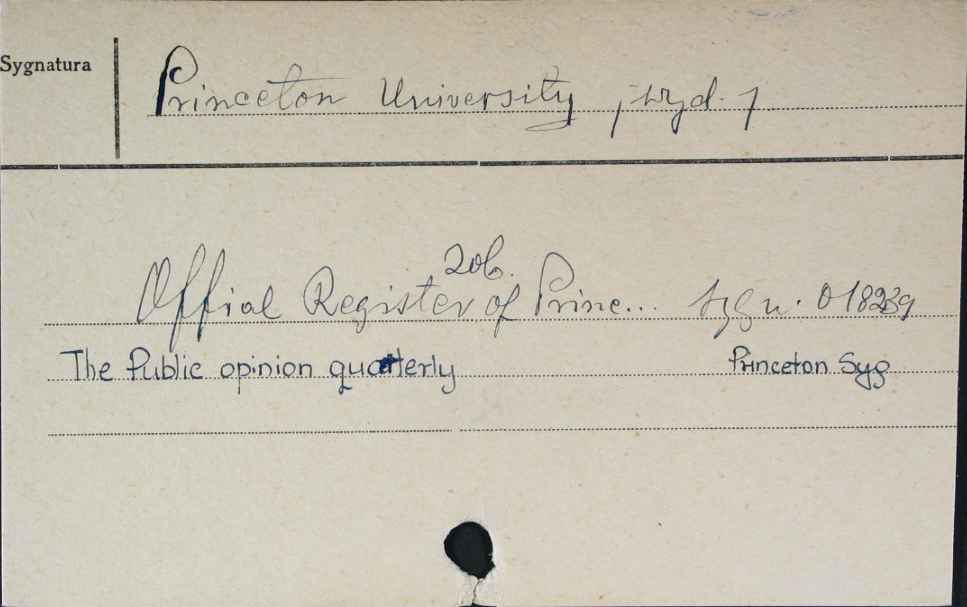 Sygnatura
Princeton University, wyd.
zob.
Offial Register of Princ... Sygn. 018239
The Public opinion quarterly Princeton Syg